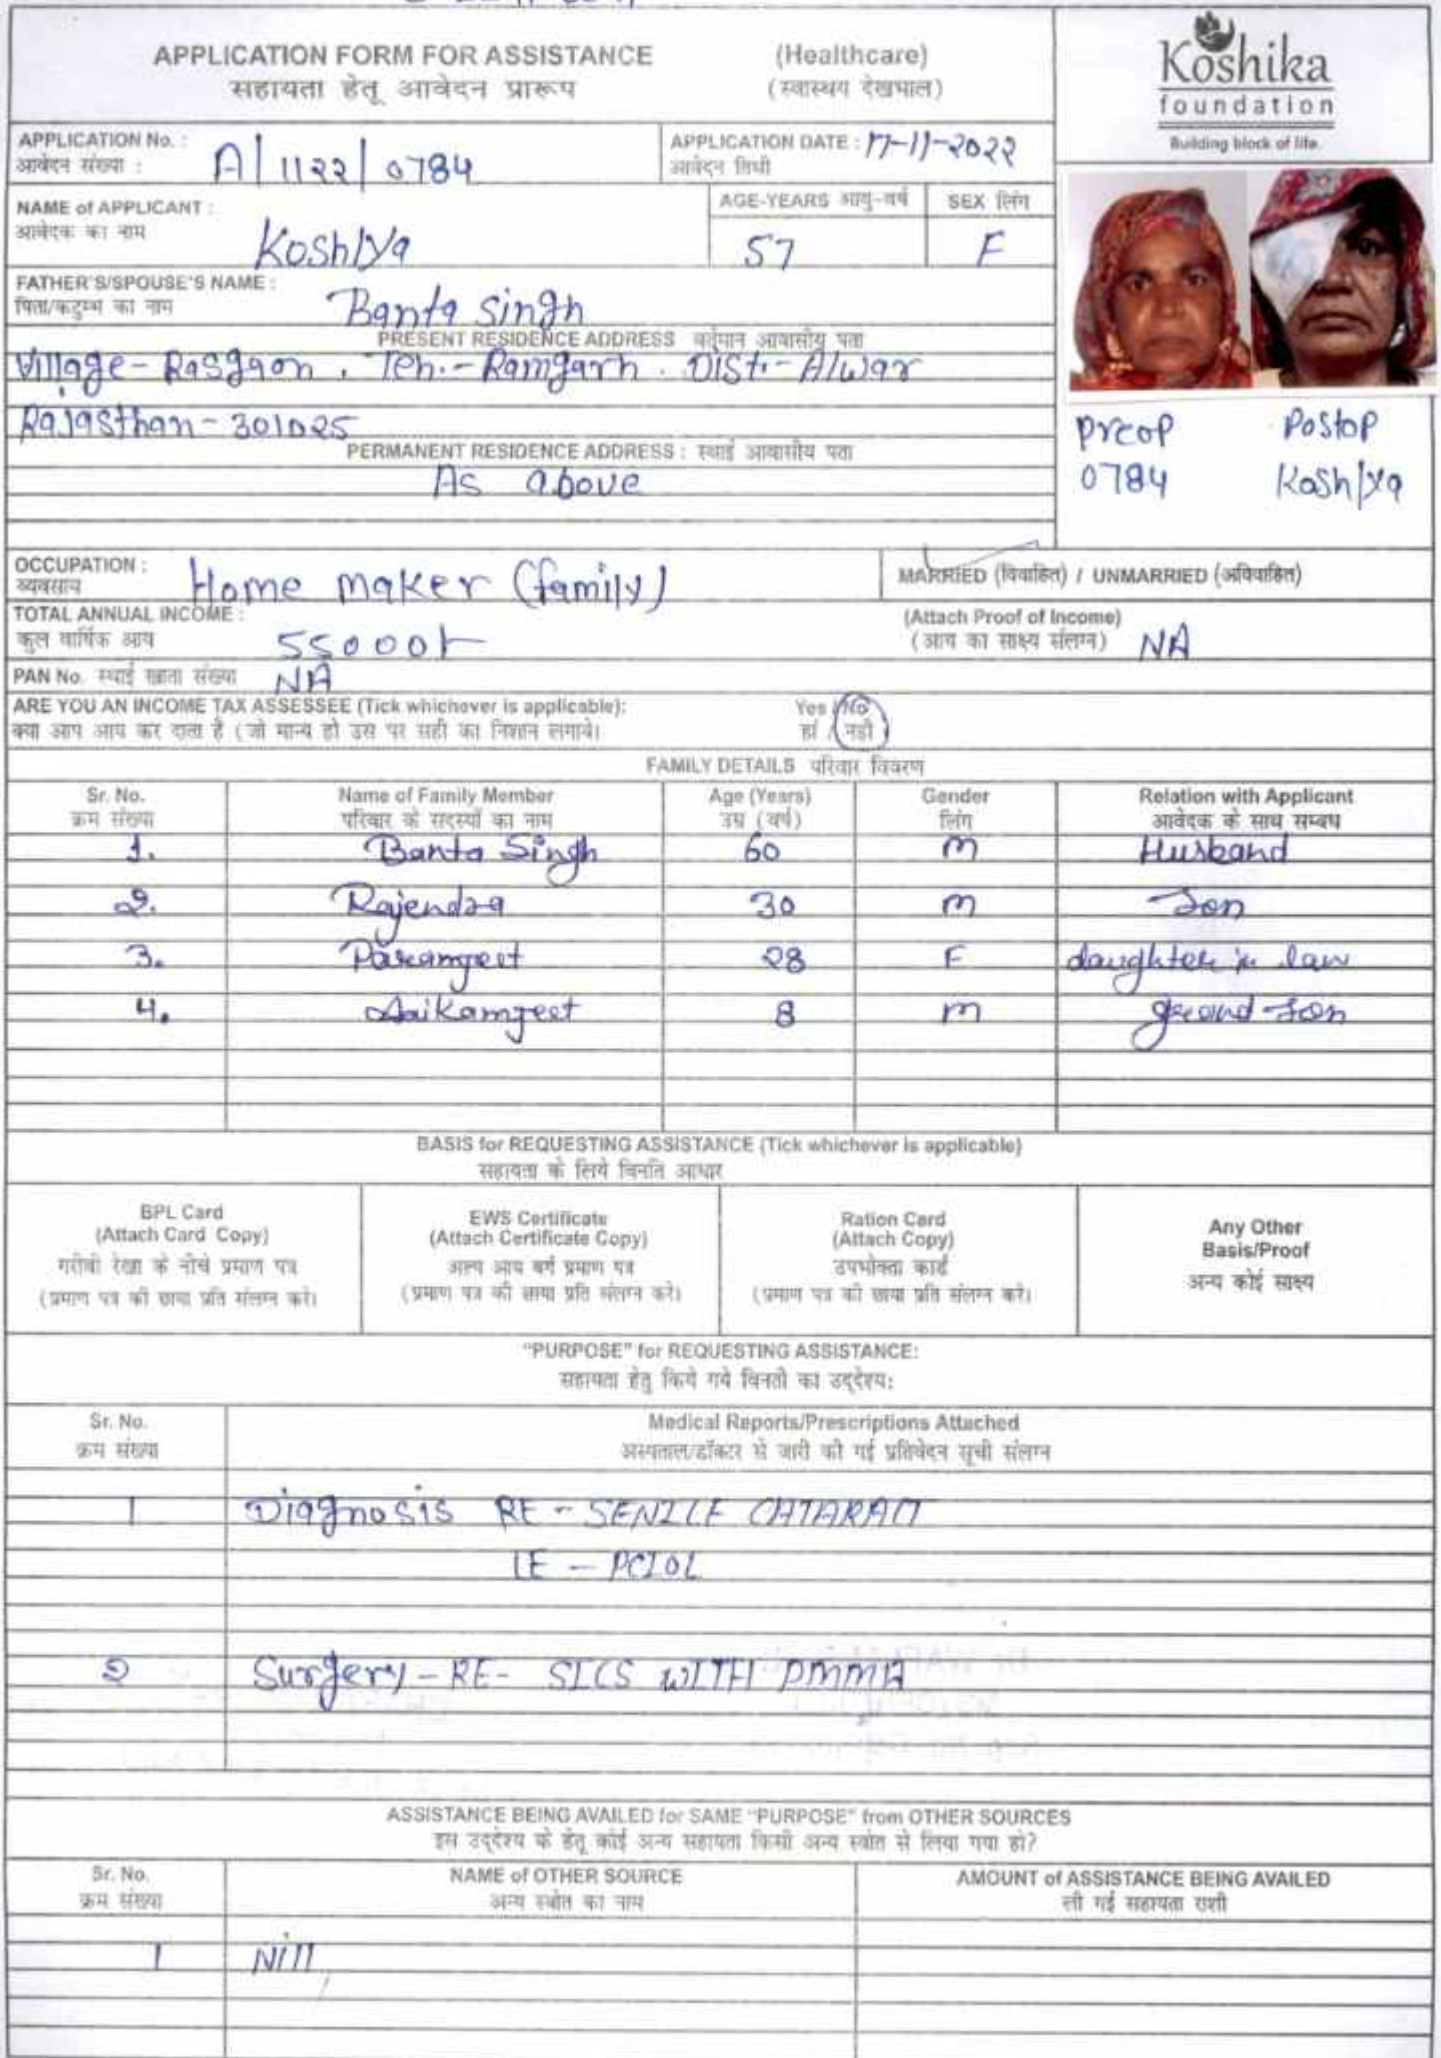 APPLICATION FORM FOR ASSISTANCE (Healthcare)
सहायता हेतू आवेदन प्रारूप (स्वास्थय देखभाल)
Koshika
foundation
Building block of life.
APPLICATION No. :
आवेदन संख्या : A/1122/0784
APPLICATION DATE : 17-11-2022
आवेदन तिथी
NAME of APPLICANT :
आवेदक का नाम Koshlya
AGE-YEARS आयु-वर्ष
57
SEX लिंग
F
FATHER'S/SPOUSE'S NAME :
पिता/कटुम्भ का नाम Banta Singh
PRESENT RESIDENCE ADDRESS वर्तमान आवासीय पता
Village - Rasgaon . Teh.- Ramgarh . Dist.- Alwar
Rajasthan - 301025
PERMANENT RESIDENCE ADDRESS : स्थाई आवासीय पता
As above
preop Postop
0784 Koshlya
OCCUPATION :
व्यवसाय Home maker (family)
MARRIED (विवाहित) / UNMARRIED (अविवाहित)
TOTAL ANNUAL INCOME :
कुल वार्षिक आय 55000/-
(Attach Proof of Income)
(आय का साक्ष्य संलग्न) NA
PAN No. स्थाई खाता संख्या NA
ARE YOU AN INCOME TAX ASSESSEE (Tick whichever is applicable): Yes / No
क्या आप आय कर दाता है (जो मान्य हो उस पर सही का निशान लगाये। हां / नही
FAMILY DETAILS परिवार विवरण
Sr. No. Name of Family Member Age (Years) Gender Relation with Applicant
क्रम संख्या परिवार के सदस्यों का नाम उम्र (वर्ष) लिंग आवेदक के साथ सम्बध
1. Banta Singh 60 M Husband
2. Rajendra 30 M Son
3. Paramgeet 28 F daughter in law
4. 8 M
BASIS for REQUESTING ASSISTANCE (Tick whichever is applicable)
सहायता के लिये विनति आधार
BPL Card
(Attach Card Copy)
गरीबी रेखा के नीचे प्रमाण पत्र
(प्रमाण पत्र की छाया प्रति संलग्न करे।
EWS Certificate
(Attach Certificate Copy)
अल्प आय वर्ग प्रमाण पत्र
(प्रमाण पत्र की छाया प्रति संलग्न करे।
Ration Card
(Attach Copy)
उपभोक्ता कार्ड
(प्रमाण पत्र की छाया प्रति संलग्न करे।
Any Other
Basis/Proof
अन्य कोई साक्ष्य
"PURPOSE" for REQUESTING ASSISTANCE:
सहायता हेतु किये गये विनती का उद्देश्य:
Sr. No. Medical Reports/Prescriptions Attached
क्रम संख्या अस्पताल/डॉक्टर से जारी की गई प्रतिवेदन सूची संलग्न
1 Diagnosis RE - SENILE CATARACT
LE - PCIOL
2 Surgery - RE - SICS WITH PMMA
ASSISTANCE BEING AVAILED for SAME "PURPOSE" from OTHER SOURCES
इस उद्देश्य के हेतू कोई अन्य सहायता किसी अन्य स्त्रोत से लिया गया हो?
Sr. No. NAME of OTHER SOURCE AMOUNT of ASSISTANCE BEING AVAILED
क्रम संख्या अन्य स्त्रोत का नाम ली गई सहायता राशी
1 Nill